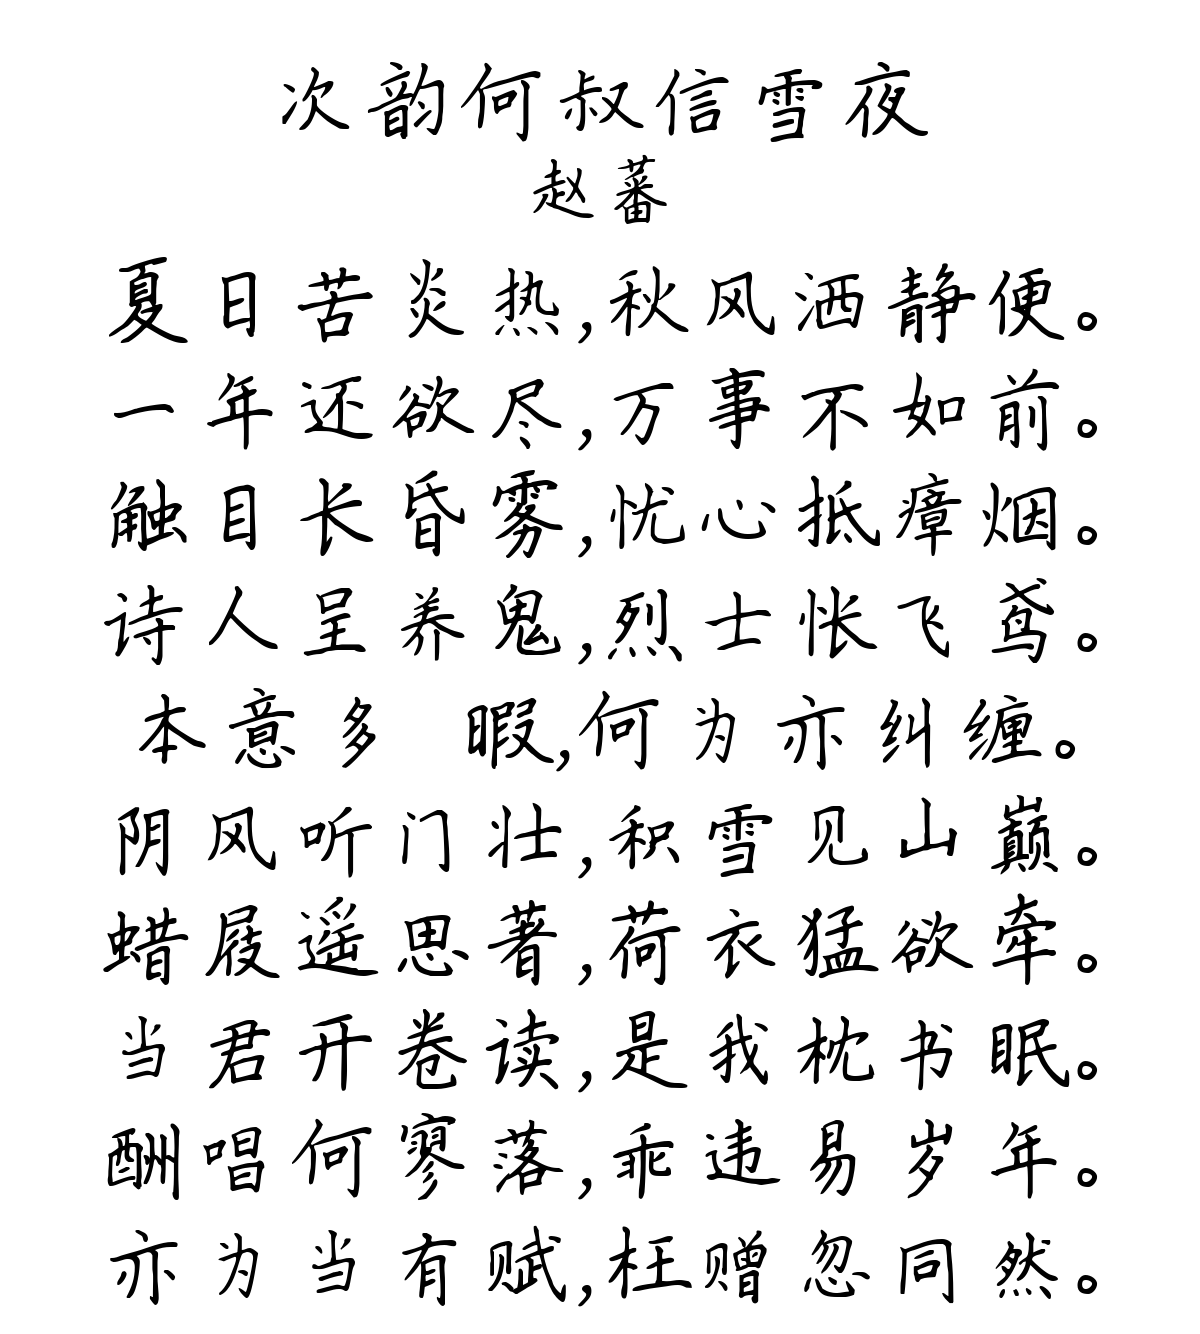 次韵何叔信雪夜
赵蕃
夏日苦炎热,秋风洒静便。
一年还欲尽,万事不如前。
触目长昏雾,忧心抵瘴烟。
诗人呈养鬼,烈士怅飞鸢。
本意多 暇,何为亦纠缠。
阴风听门壮,积雪见山巅。
蜡屐遥思著,荷衣猛欲牵。
当君开卷读,是我枕书眠。
酬唱何寥落,乖违易岁年。
亦为当有赋,枉赠忽同然。